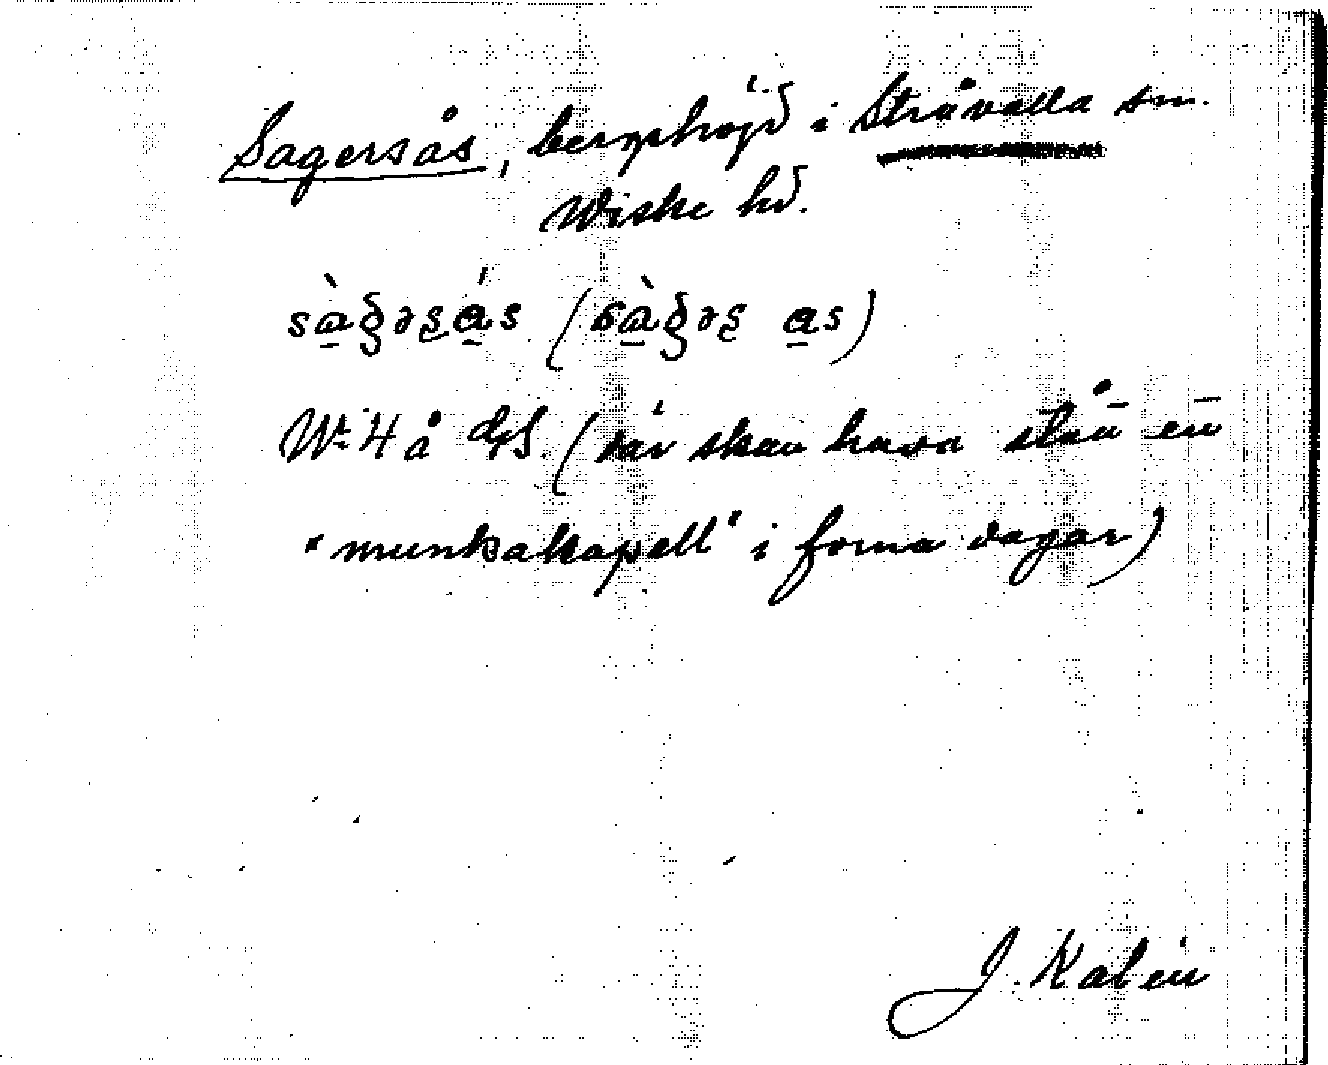 Sagersås, bergshöjd i Stråvalla sn.
Wiske hd.
sàgəsás (sàgəs as)
W. 4 å (där skall hava stått en
"munkakapell" i forna dagar)
J. Kalén